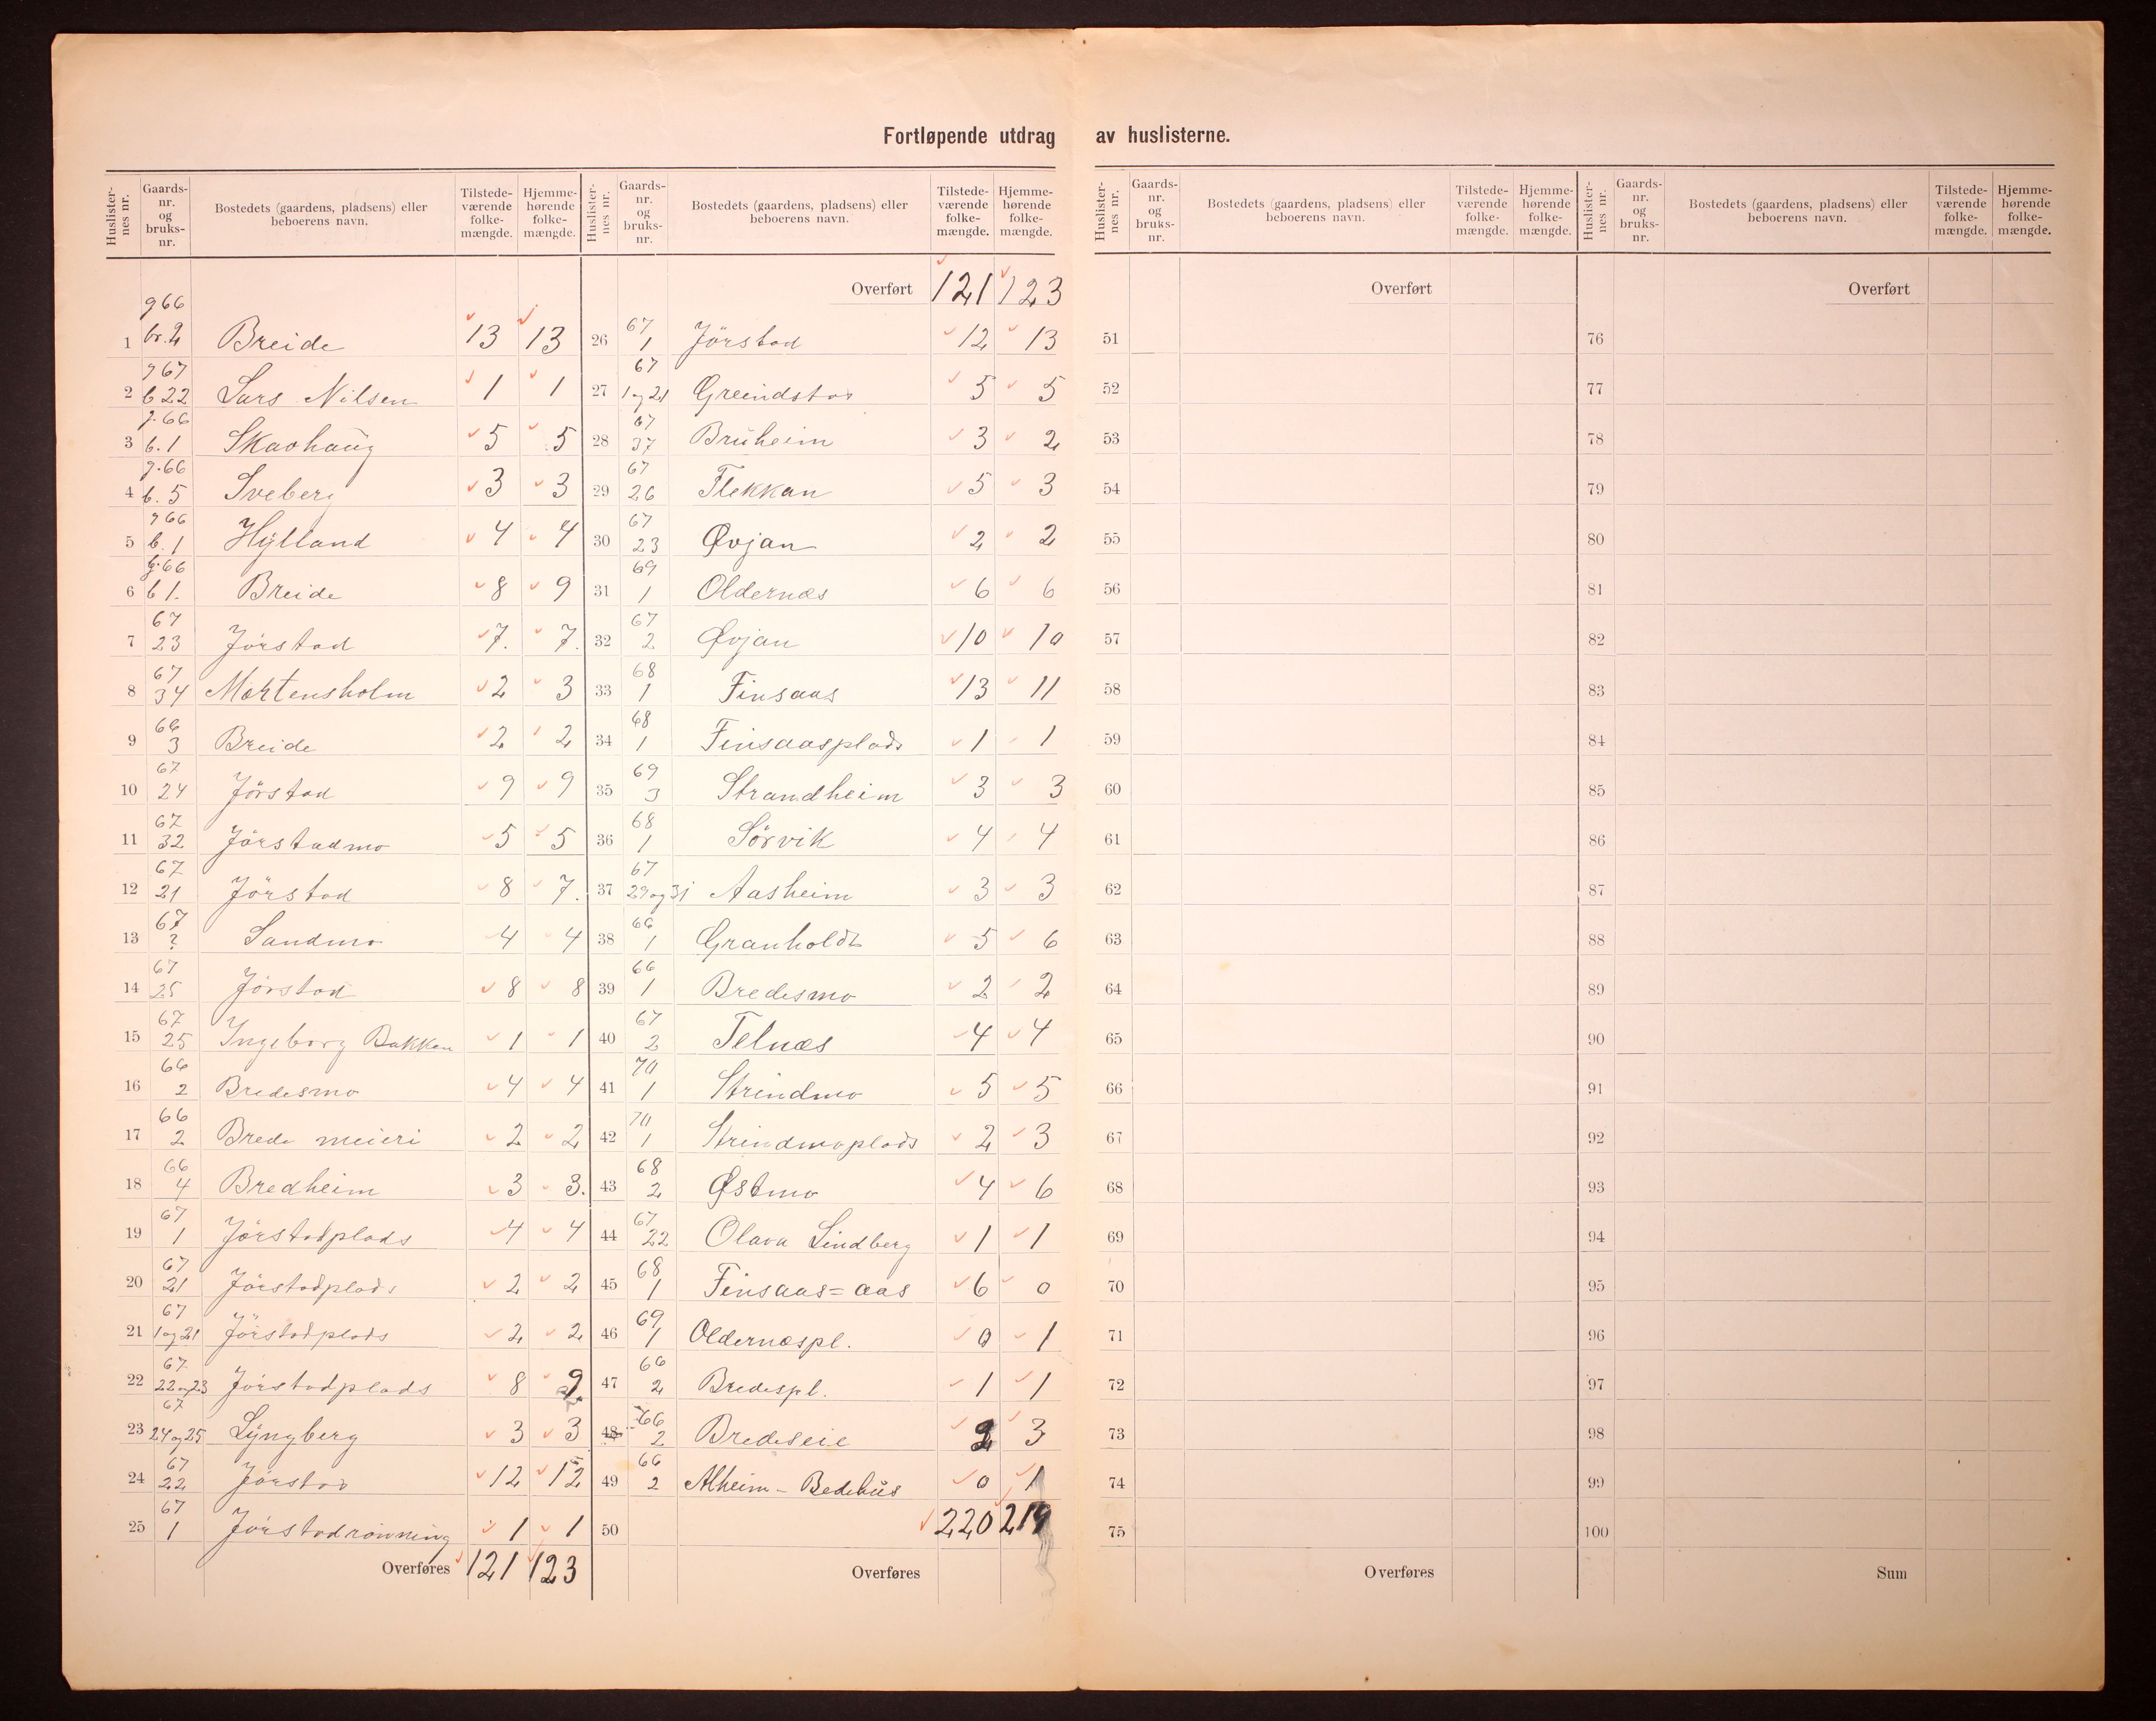 Fortløpende utdrag av huslisterne.
Huslisternes nr. Gaards-nr. og bruks-nr. Bostedets (gaardens, pladsens) eller beboerens navn. Tilstede-værende folke-mængde. Hjemme-hørende folke-mængde.
Huslisternes nr. Gaards-nr. og bruks-nr. Bostedets (gaardens, pladsens) eller beboerens navn. Tilstede-værende folke-mængde. Hjemme-hørende folke-mængde.
Huslisternes nr. Gaards-nr. og bruks-nr. Bostedets (gaardens, pladsens) eller beboerens navn. Tilstede-værende folke-mængde. Hjemme-hørende folke-mængde.
Huslisternes nr. Gaards-nr. og bruks-nr. Bostedets (gaardens, pladsens) eller beboerens navn. Tilstede-værende folke-mængde. Hjemme-hørende folke-mængde.
1 g 66 br. 2 Breide 13 13
2 g 67 b 22 Lars Nilsen 1 1
3 g. 66 b. 1 Skavhaug 5 5
4 g. 66 b. 5 Sveberg 3 3
5 g 66 b. 1 Hylland 4 4
6 g. 66 b 1. Breide 8 9
7 67 23 Jörstad 7. 7.
8 67 34 Mortensholm 2 3
9 66 3 Breide 2 2
10 67 24 Jörstad 9 9
11 67 32 Jörstadmo 5 5
12 67 21 Jörstad 8 7.
13 67 ? Sandmo 4 4
14 67 25 Jörstad 8 8
15 67 25 Ingeborg Bakken 1 1
16 66 2 Bredesmo 4 4
17 66 2 Brede meieri 2 2
18 66 4 Bredheim 3 3.
19 67 1 Jörstadplads 4 4
20 67 21 Jörstadplads 2 2
21 67 1 og 21 Jörstadplads 2 2
22 67 22 og 23 Jörstadplads 8 9
23 67 24 og 25 Lyngberg 3 3
24 67 22 Jörstad 12 12
25 67 1 Jörstadrönning 1 1
Overføres 121 123
Overført 121 123
26 67 1 Jörstad 12 13
27 67 1 og 21 Greindstad 5 5
28 67 37 Bruheim 3 2
29 67 26 Flekkan 5 3
30 67 23 Øvjan 2 2
31 69 1 Oldernæs 6 6
32 67 2 Øvjan 10 10
33 68 1 Finsaas 13 11
34 68 1 Finsaasplads 1 1
35 69 3 Strandheim 3 3
36 68 1 Sörvik 4 4
37 67 29 og 31 Aasheim 3 3
38 66 1 Granholdt 5 6
39 66 1 Bredesmo 2 2
40 67 2 Telnæs 4 4
41 70 1 Strindmo 5 5
42 70 1 Strindmoplads 2 3
43 68 2 Østmo 4 6
44 67 22 Olava Lindberg 1 1
45 68 1 Finsaas=aas 6 0
46 69 1 Oldernæspl. 0 1
47 66 2 Bredespl. 1 1
48 66 2 Bredeseie 2 3
49 66 2 Alheim - Bedehus 0 1
50 220 219
Overføres
Overført
51
52
53
54
55
56
57
58
59
60
61
62
63
64
65
66
67
68
69
70
71
72
73
74
75
Overføres
Overført
76
77
78
79
80
81
82
83
84
85
86
87
88
89
90
91
92
93
94
95
96
97
98
99
100
Sum